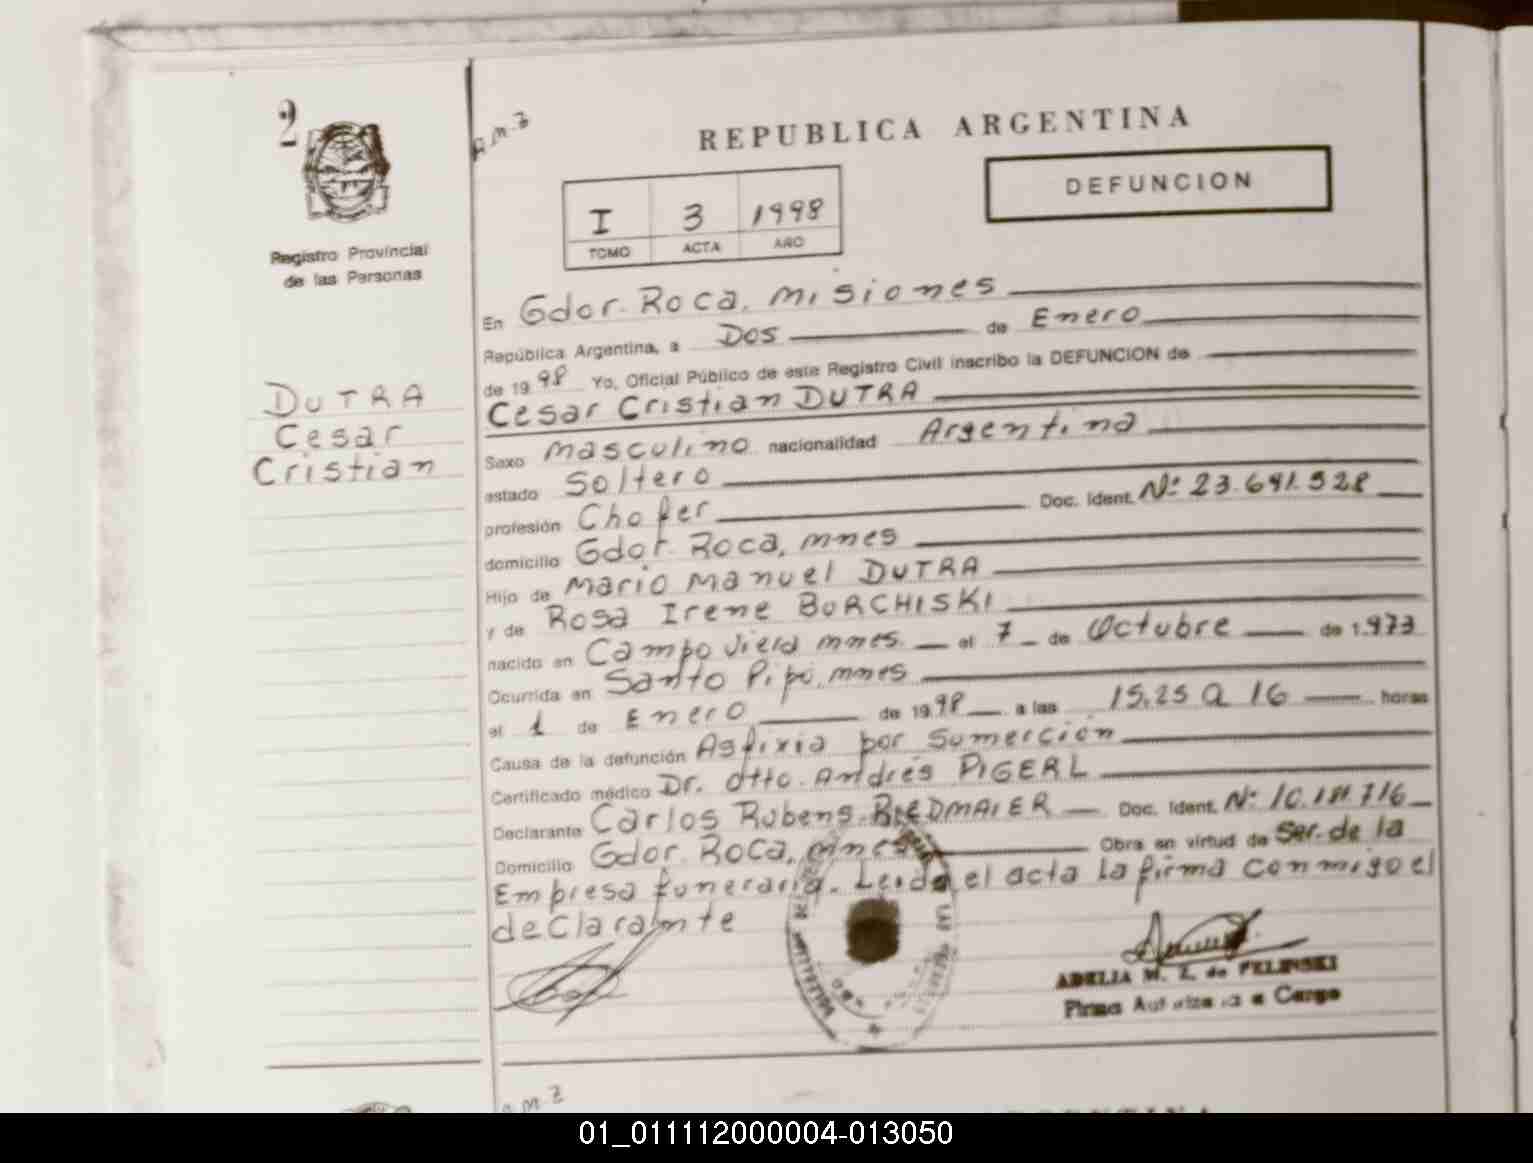 2
A.M.Z
REPUBLICA ARGENTINA
DEFUNCION
I 3 1998
TOMO ACTA AÑO
Registro Provincial
de las Personas
En Gdor. Roca, misiones
República Argentina, a Dos de Enero
de 1998 Yo, Oficial Público de este Registro Civil inscribo la DEFUNCION de
DUTRA
Cesar
Cristian
Cesar Cristian DUTRA
Sexo masculino nacionalidad Argentina
estado Soltero
profesión Chofer Doc. Ident. Nº 23.641.528
domicilio Gdor. Roca, mnes
Hijo de Mario Manuel DUTRA
y de Rosa Irene BORCHISKI
nacido en Campo Viera mnes. el 7 de Octubre de 1.973
Ocurrida en Santo Pipó, mnes
el 1 de Enero de 1998 a las 15.25 a 16 horas
Causa de la defunción Asfixia por sumerción
Certificado médico Dr. Otto Andrés PIGERL
Declarante Carlos Rubens RIEDMAIER Doc. Ident. Nº 10.181.716
Domicilio Gdor. Roca, mnes Obra en virtud de Ser. de la
Empresa funeraria. Leida el acta la firma conmigo el
declarante
ADELIA M. Z. de FELINSKI
Firma Autorizada a Cargo
A.M.Z
01_011112000004-013050